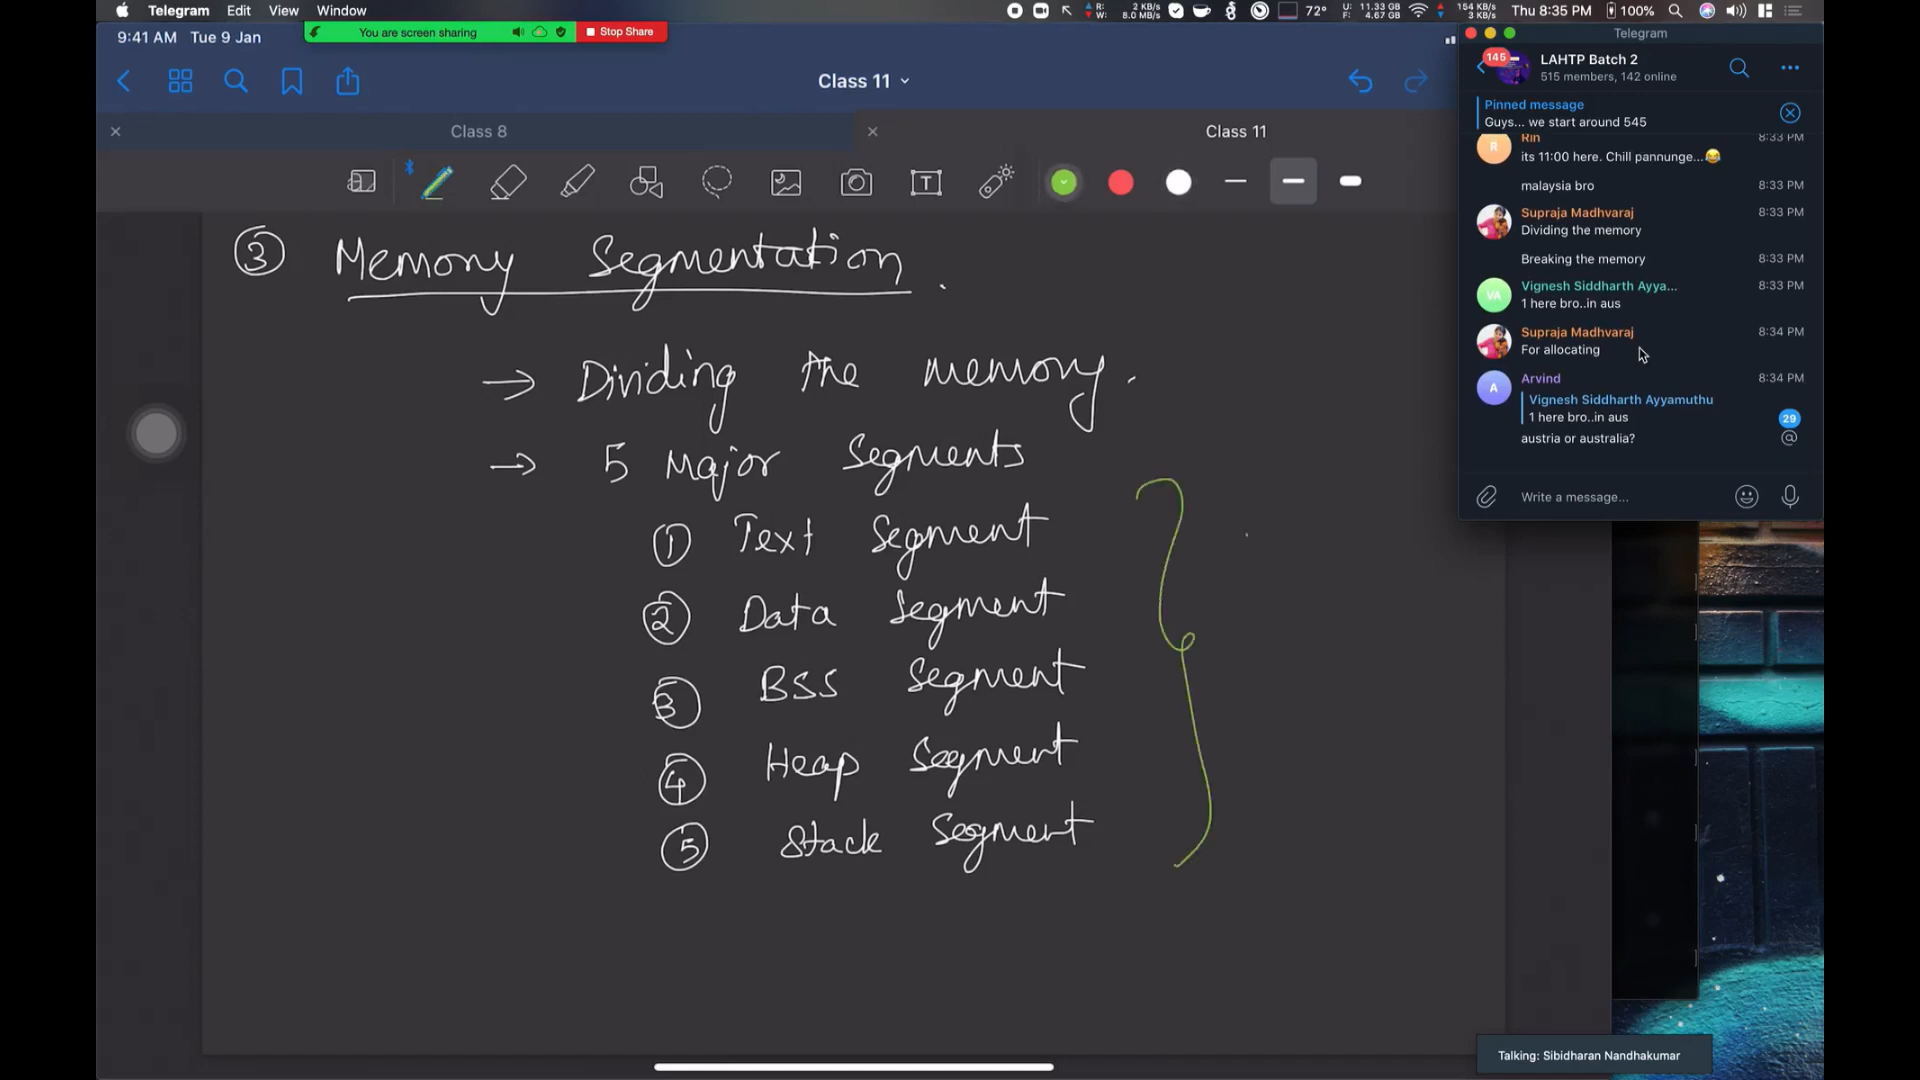 Telegram Edit View Window
R: 2 KB/s
W: 8.0 MB/s
72°
U: 11.33 GB
F: 4.67 GB
154 KB/s
3 KB/s
Thu 8:35 PM
100%
9:41 AM Tue 9 Jan
You are screen sharing
Stop Share
Class 11
Class 8
Class 11
T
3 Memory Segmentation.
→ Dividing the memory.
→ 5 Major Segments
1 Text Segment
2 Data Segment
3 BSS Segment
4 Heap Segment
5 Stack Segment
Telegram
145
LAHTP Batch 2
515 members, 142 online
Pinned message
Guys... we start around 545
R
Rin 8:33 PM
its 11:00 here. Chill pannunge...😂
malaysia bro 8:33 PM
Supraja Madhvaraj 8:33 PM
Dividing the memory
Breaking the memory 8:33 PM
VA
Vignesh Siddharth Ayya... 8:33 PM
1 here bro..in aus
Supraja Madhvaraj 8:34 PM
For allocating
A
Arvind 8:34 PM
Vignesh Siddharth Ayyamuthu
1 here bro..in aus
29
austria or australia?
@
Write a message...
Talking: Sibidharan Nandhakumar